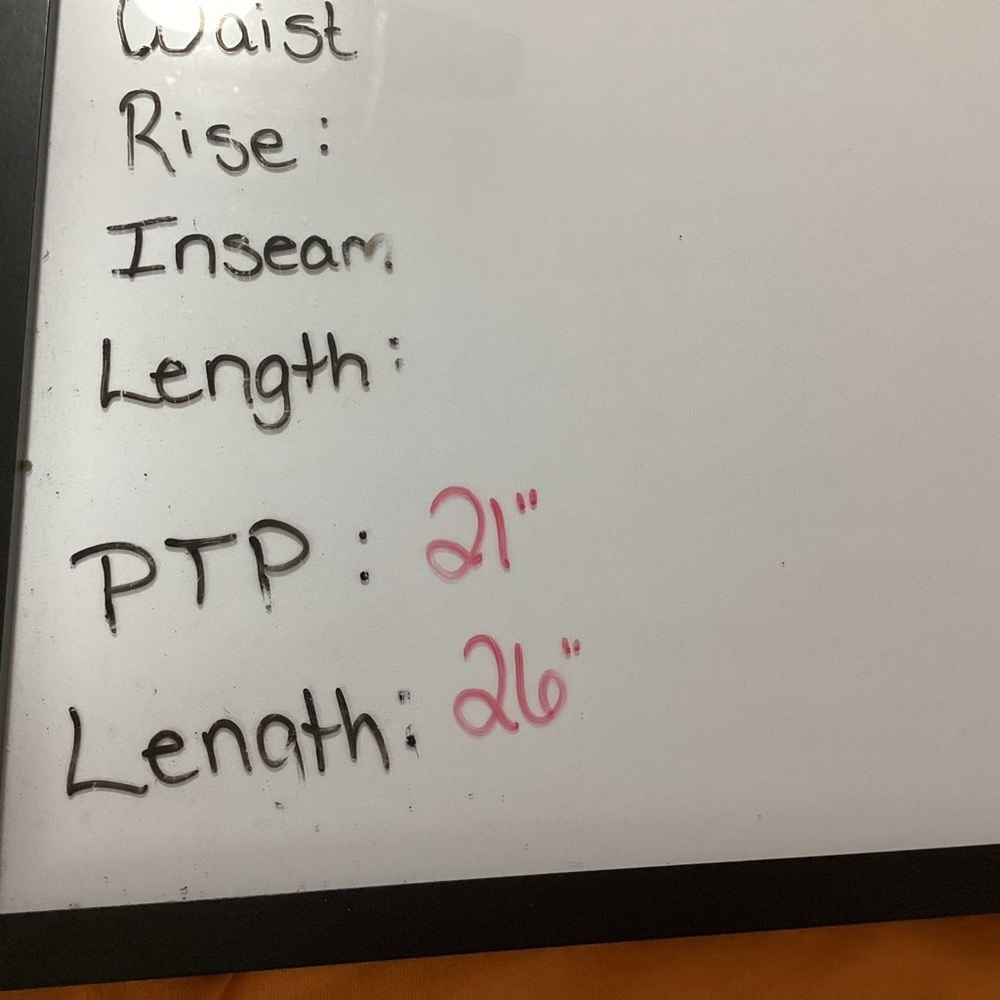 Waist
Rise:
Inseam
Length:
PTP: 21"
Length: 26"